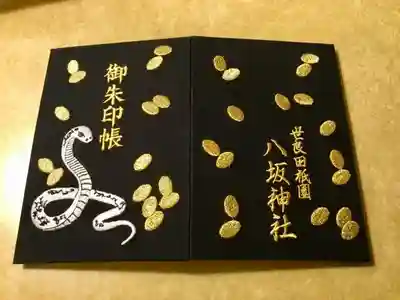 御朱印帳
世良田祇園
八坂神社